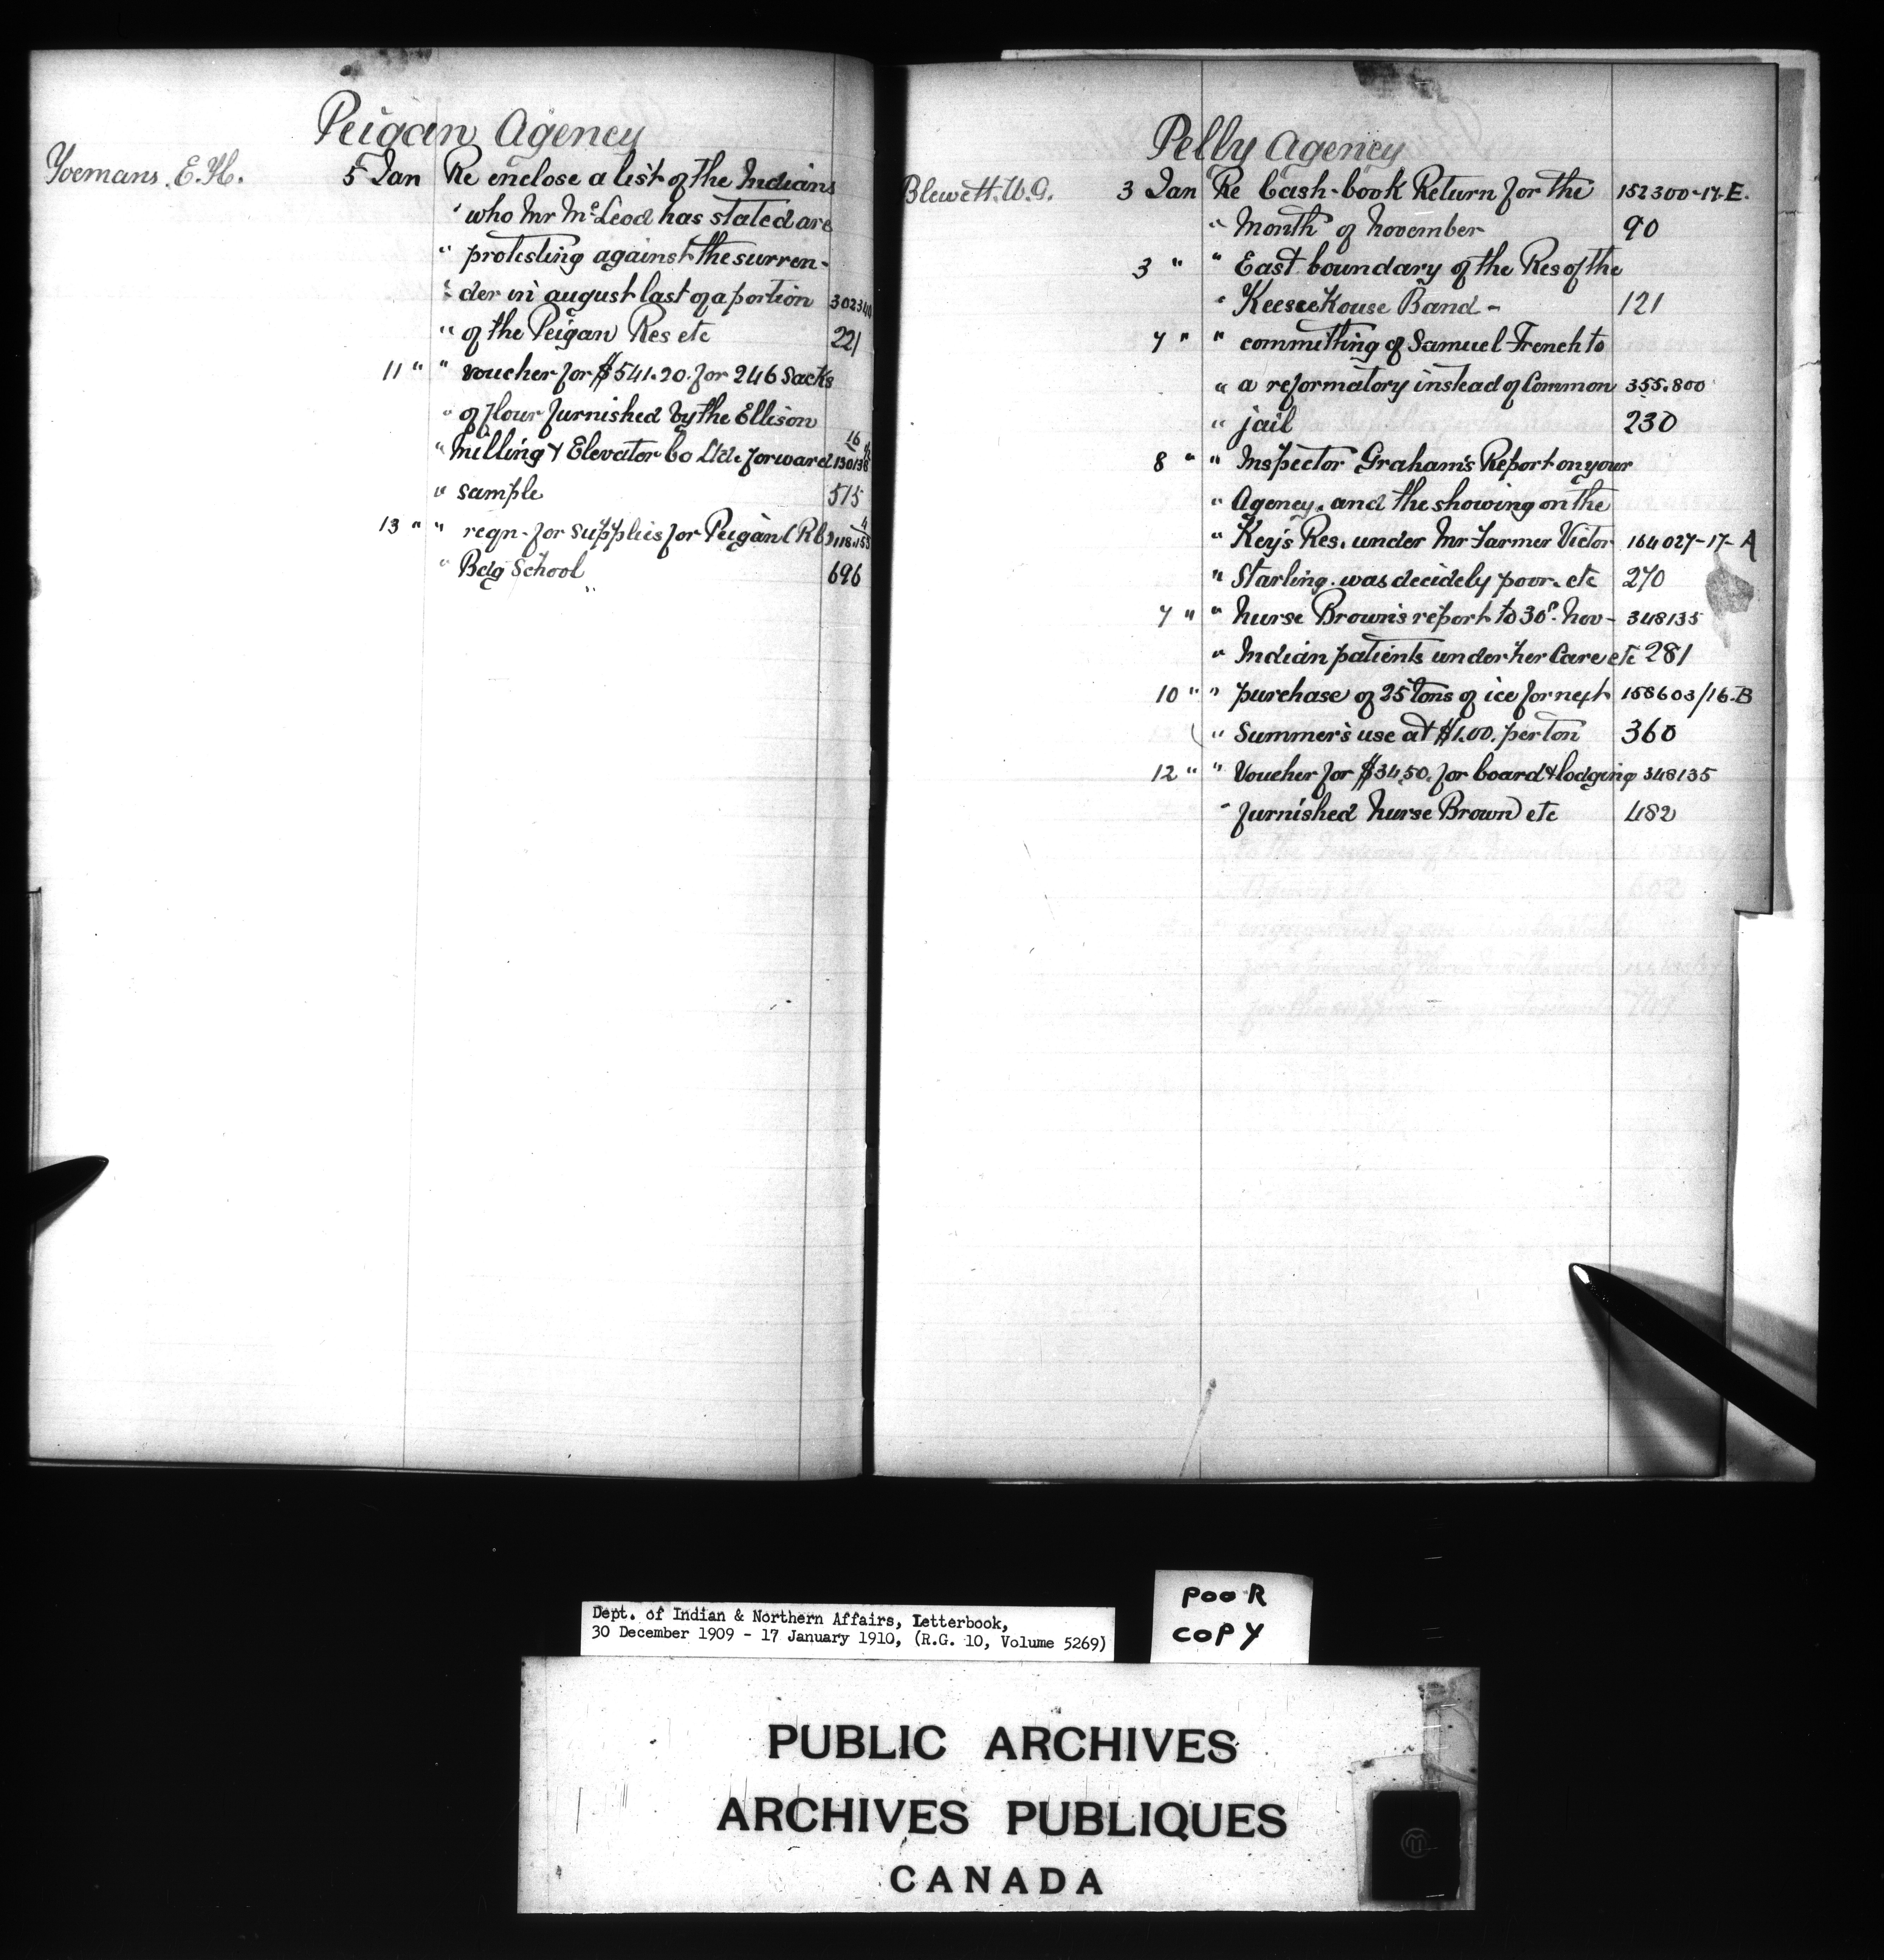 Peigan Agency
Yoemans. E. H. 5 Jan Re enclose a list of the Indians
" who Mr McLeod has stated are
" protesting against the surren-
" der in august last of a portion 302340
" of the Peigan Res etc 221
11 " " voucher for $541.20. for 246 Sacks
" of flour furnished by the Ellison
" Milling & Elevator Co Ltd. forward 130138
" sample 515
13 " " reqn. for supplies for Peigan (R C) 118.153
" Bdg School 696
Pelly Agency
Blewett. W. G. 3 Jan Re Cash-book Return for the 152300-17-E.
" Month of November 90
3 " " East boundary of the Res of the
" Keeseekouse Band - 121
7 " " committing of Samuel French to
" a reformatory instead of Common 355.800
" jail 230
8 " " Inspector Graham's Report on your
" Agency. and the showing on the
" Key's Res. under Mr Farmer Victor 164027-17-A
" Starling. was decidely poor. etc 270
7 " " Nurse Brown's report to 30th Nov - 348135
" Indian patients under her Care etc 281
10 " " purchase of 25 tons of ice for next 158603/16-B
" Summer's use at $1.00. per ton 360
12 " " Voucher for $34.50. for board & lodging 348135
" furnished Nurse Brown etc 482
Dept. of Indian & Northern Affairs, Letterbook,
30 December 1909 - 17 January 1910, (R.G. 10, Volume 5269)
POOR
COPY
PUBLIC ARCHIVES
ARCHIVES PUBLIQUES
CANADA